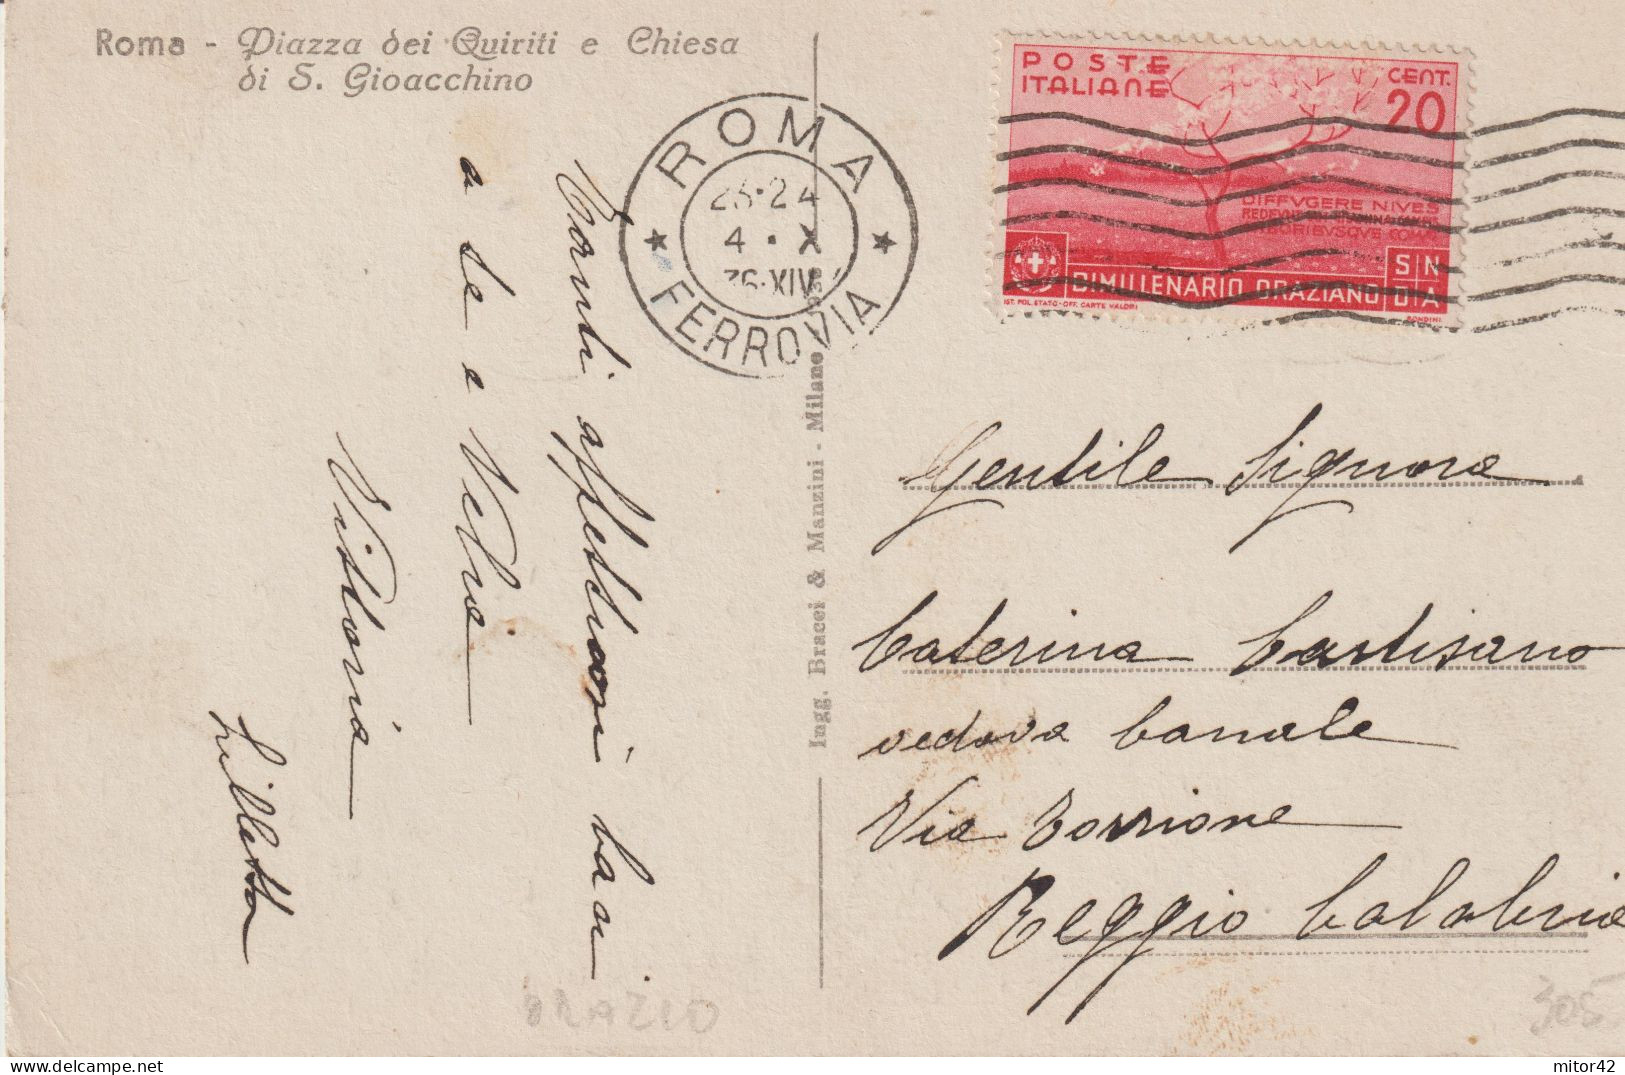 Roma - Piazza dei Quiriti e Chiesa
di S. Gioacchino
ROMA
23·24
4 · X
36·XIV
FERROVIA
POSTE
ITALIANE
CENT.
20
DIFFVGERE NIVES
REDEVNT
ARBORIBVSQVE COMAE
BIMILLENARIO ORAZIANO
IST. POL. STATO - OFF. CARTE VALORI
RONDINI
Ingg. Bracci & Manzini - Milano
Tanti affettuosi baci
a te e Velia
Vittoria
Gentile Signora
Caterina Cartisano
vedova Canale
Via Torrione
Reggio Calabria
ORAZIO
305
mitor42